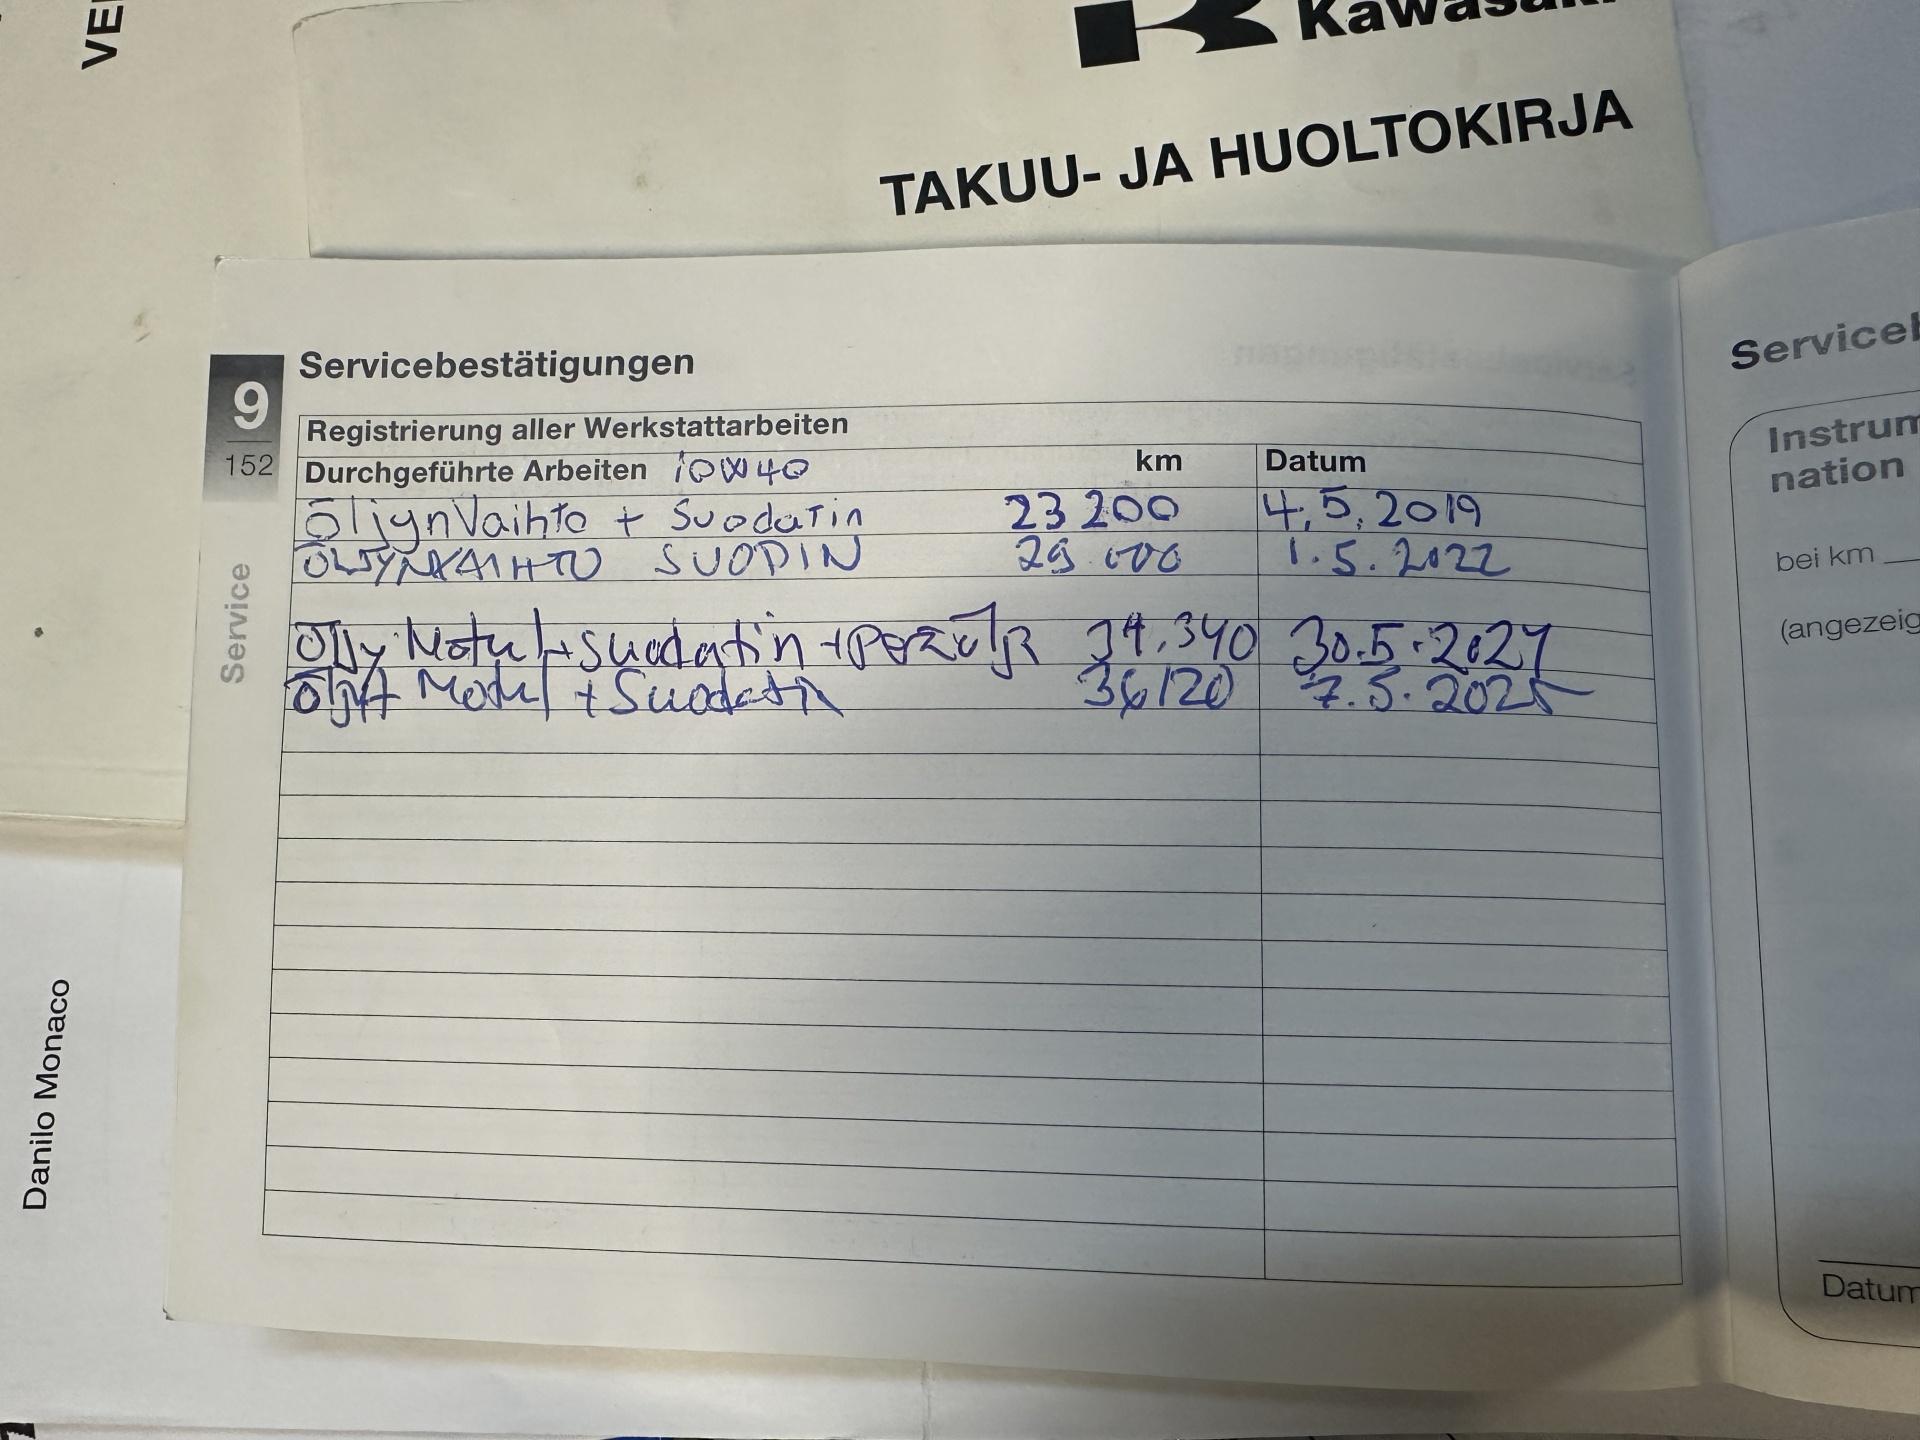 Kawasaki
TAKUU- JA HUOLTOKIRJA
Servicebestätigungen
9
152
Service
Registrierung aller Werkstattarbeiten
Durchgeführte Arbeiten 10W40 km Datum
ÖljynVaihto + Suodatin 23 200 4.5.2019
ÖLJYNVAIHTO SUODIN 29 000 1.5.2022
Öljy Motul + suodatin + 34.340 30.5.2024
Motul + Suodatin 36120 7.5.2025
Danilo Monaco
bei km
Datum